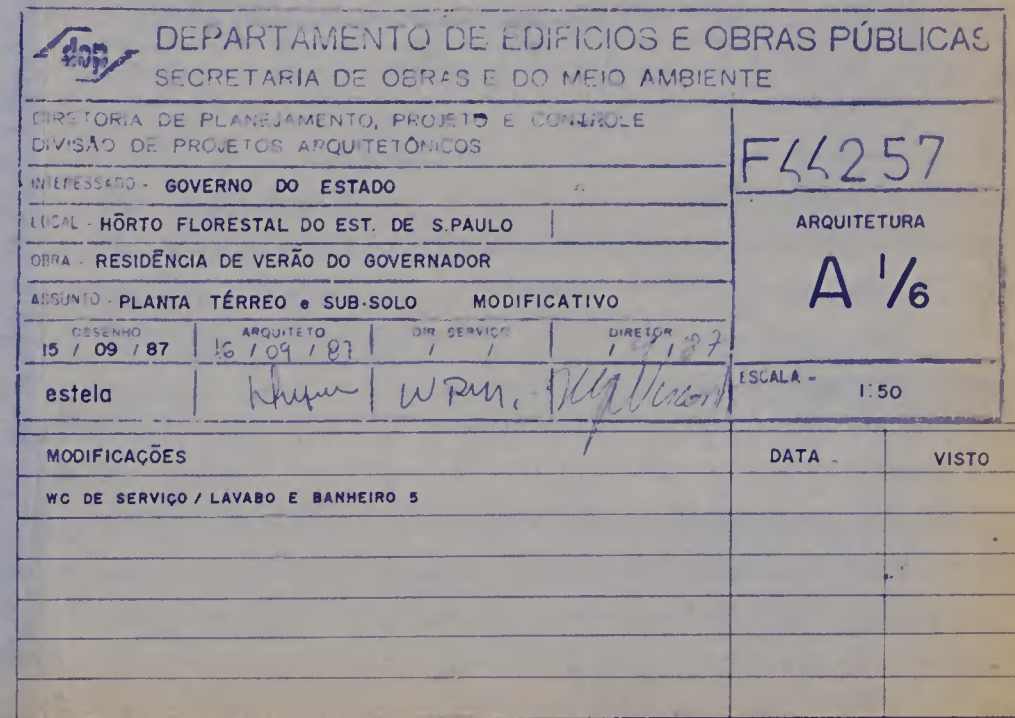 DEPARTAMENTO DE EDIFICIOS E OBRAS PÚBLICAS
SECRETARIA DE OBRAS E DO MEIO AMBIENTE
DIRETORIA DE PLANEJAMENTO, PROJETO E CONTROLE
DIVISÃO DE PROJETOS ARQUITETÔNICOS
F44257
INTERESSADO - GOVERNO DO ESTADO
LOCAL - HÔRTO FLORESTAL DO EST. DE S.PAULO
ARQUITETURA
OBRA - RESIDÊNCIA DE VERÃO DO GOVERNADOR
A 1/6
ASSUNTO - PLANTA TÉRREO e SUB-SOLO MODIFICATIVO
DESENHO ARQUITETO DIR SERVIÇO DIRETOR
15 / 09 / 87 16 / 09 / 87 / / / / 87
ESCALA - 1:50
estela
MODIFICAÇÕES DATA - VISTO
WC DE SERVIÇO / LAVABO E BANHEIRO 5